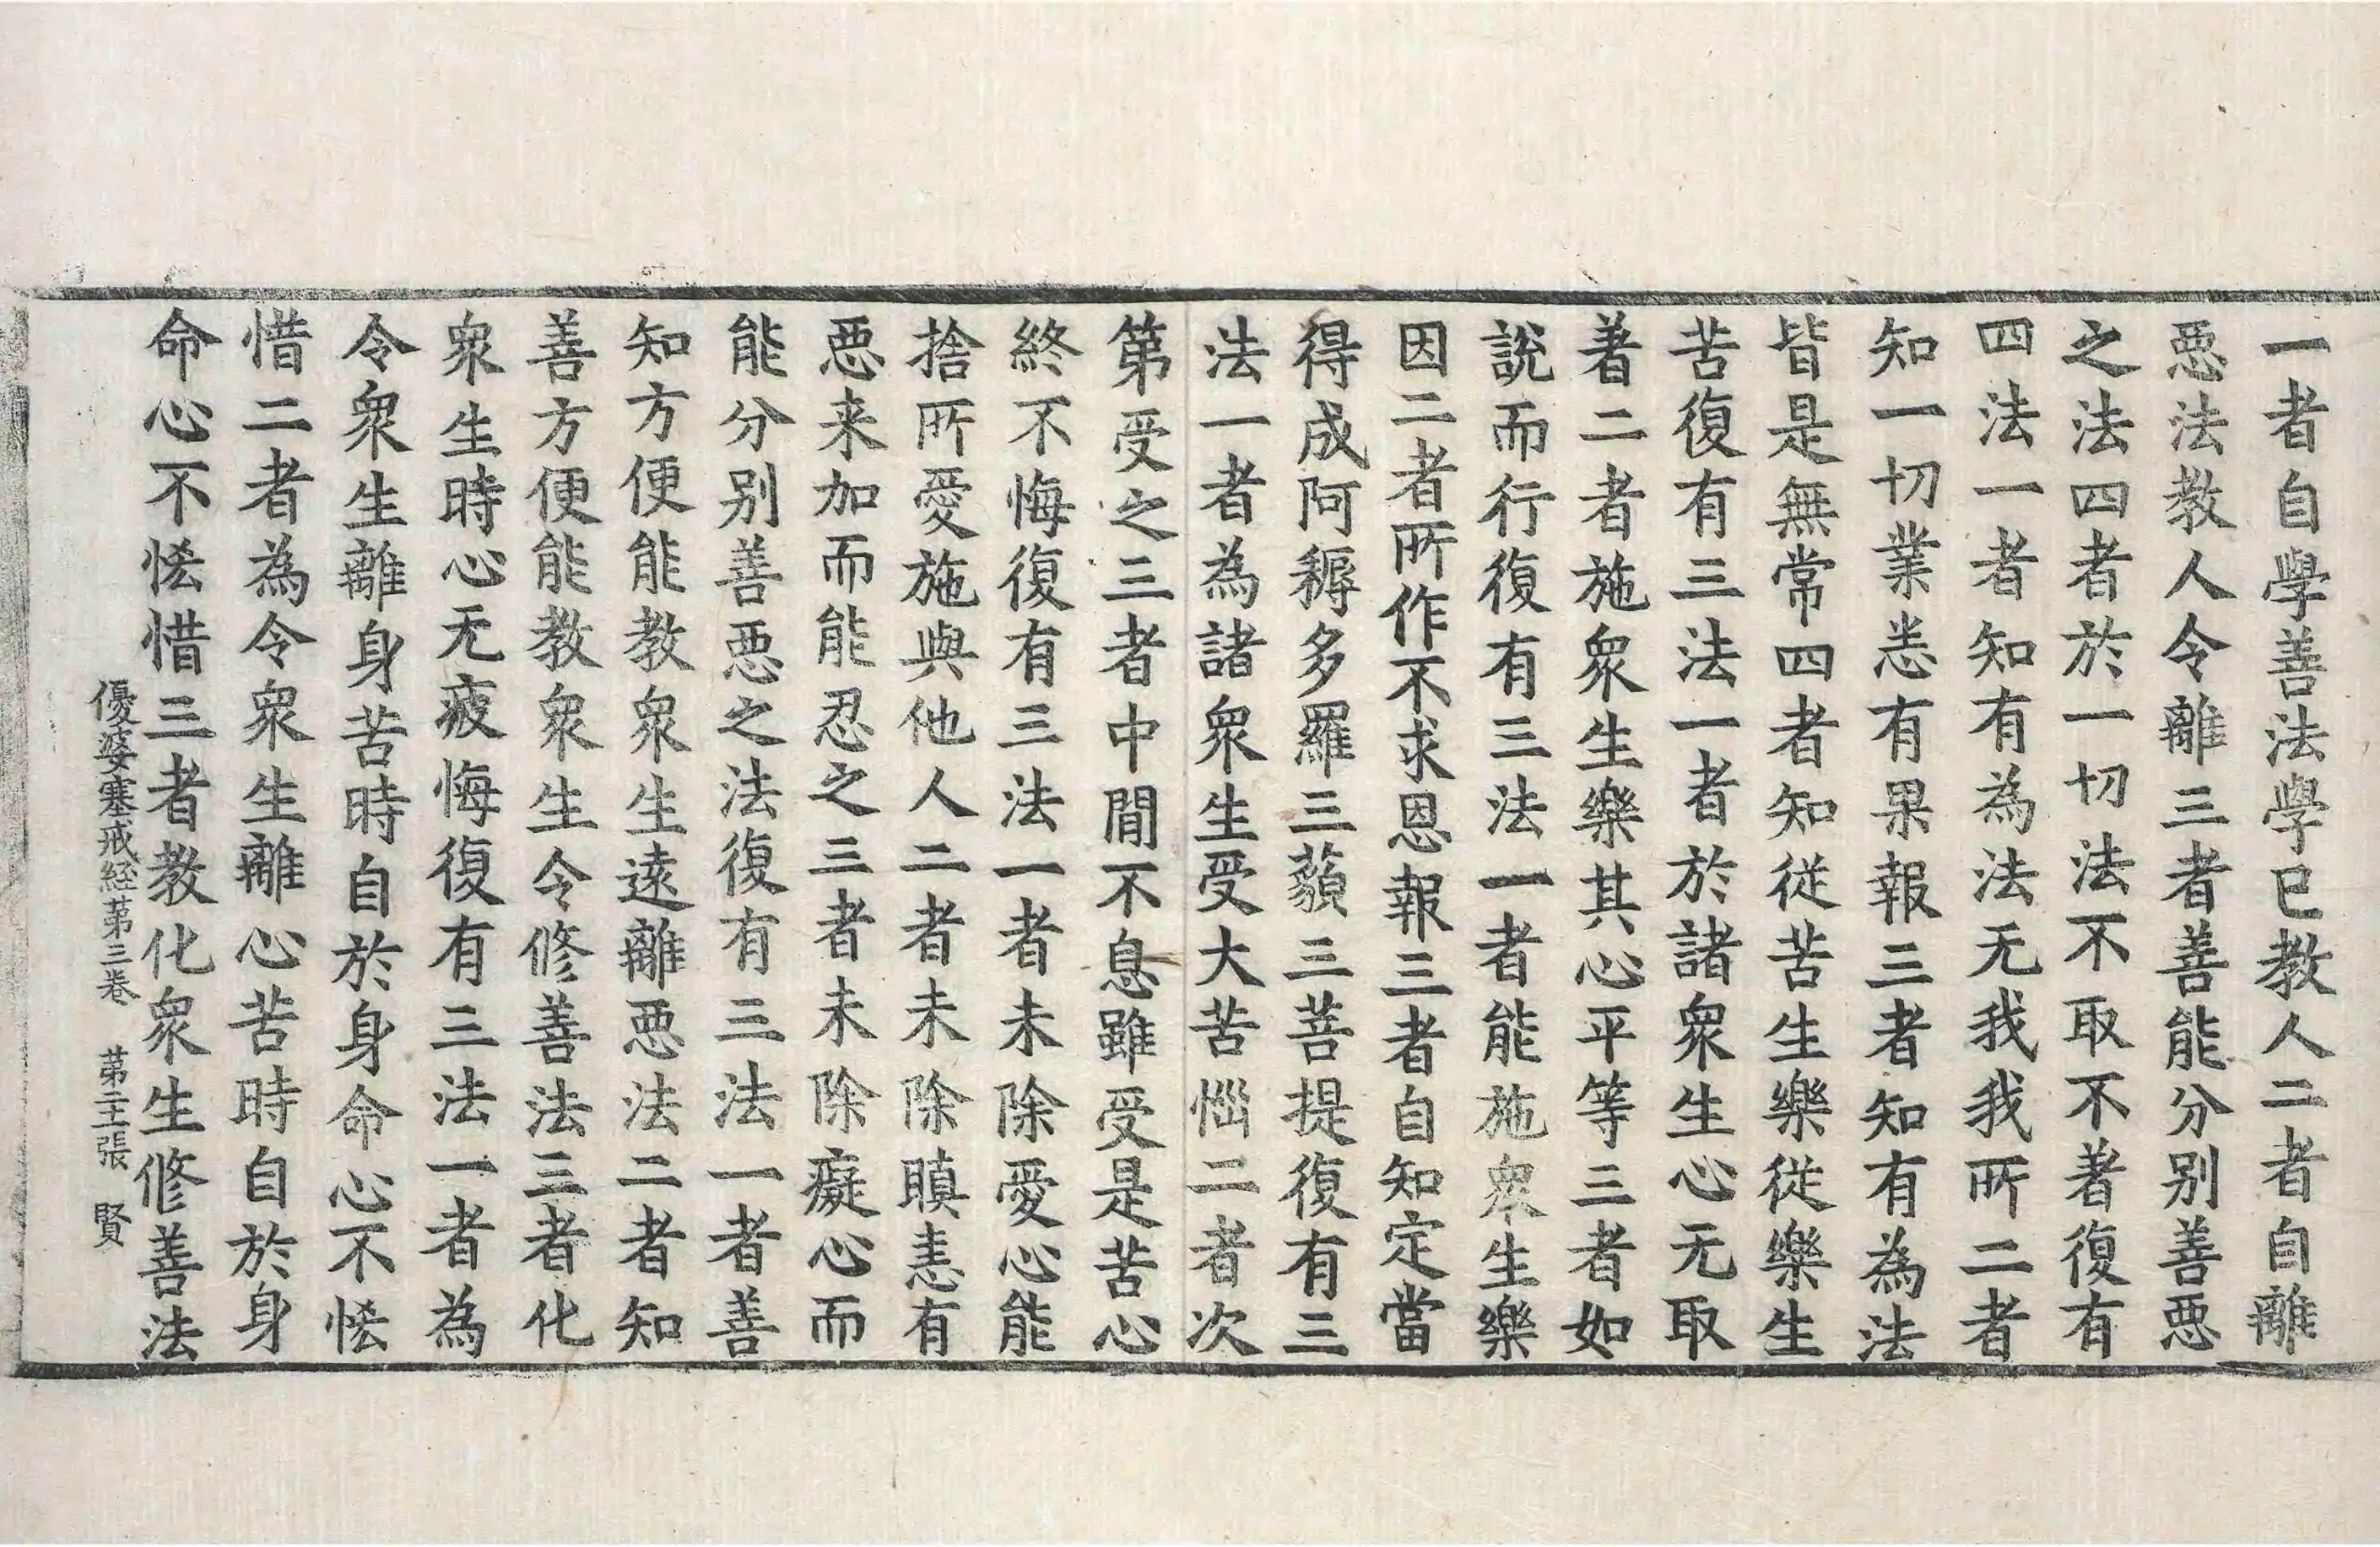 一者自學善法學已教人二者自離
惡法教人令離三者善能分別善惡
之法四者於一切法不取不著復有
四法一者知有為法无我我所二者
知一切業悉有果報三者知有為法
皆是無常四者知從苦生樂從樂生
苦復有三法一者於諸眾生心无取
著二者施眾生樂其心平等三者如
說而行復有三法一者能施眾生樂
因二者所作不求恩報三者自知定當
得成阿耨多羅三藐三菩提復有三
法一者為諸眾生受大苦惱二者次
第受之三者中間不息雖受是苦心
終不悔復有三法一者未除愛心能
捨所愛施與他人二者未除瞋恚有
惡来加而能忍之三者未除癡心而
能分別善惡之法復有三法一者善
知方便能教眾生遠離惡法二者知
善方便能教眾生令修善法三者化
眾生時心无疲悔復有三法一者為
令眾生離身苦時自於身命心不悋
惜二者為令眾生離心苦時自於身
命心不悋惜三者教化眾生修善法
優婆塞戒経苐三卷 苐二主張 賢